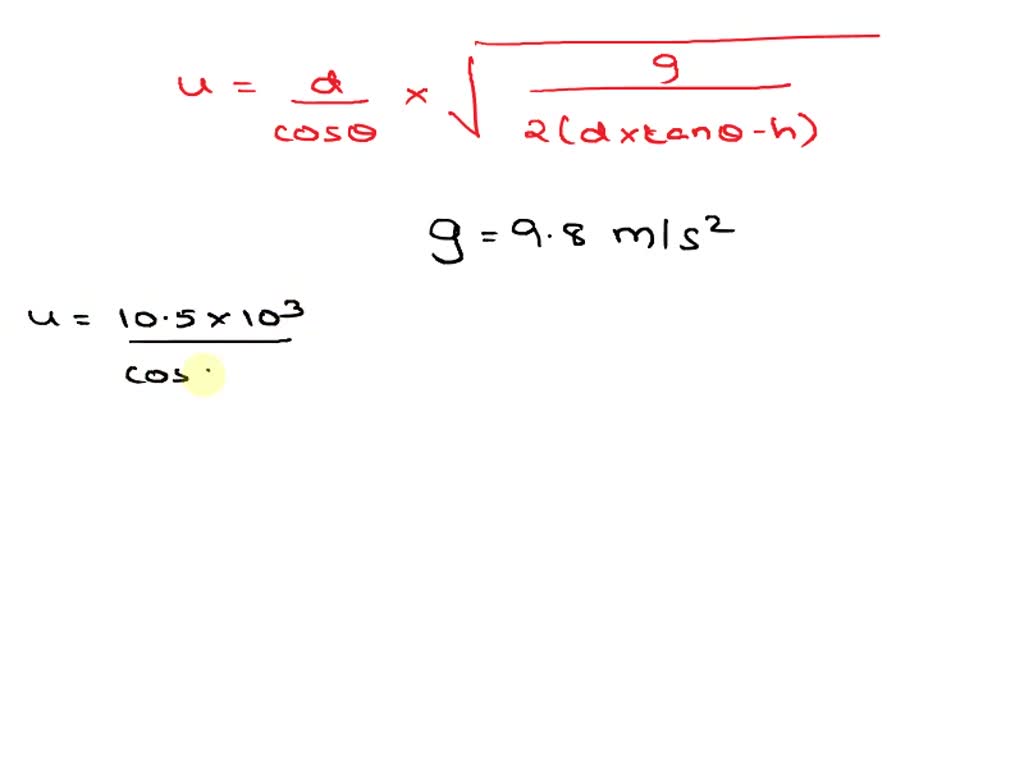 u = d/cosθ × √(g/2(d×tanθ-h))
g = 9.8 m/s²
u = 10.5×10³/cos